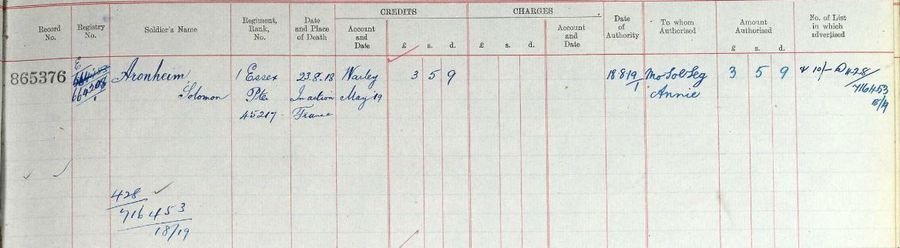 CREDITS CHARGES
Record No. Registry No. Soldier's Name Regiment, Rank, No. Date and Place of Death Account and Date £ s. d. £ s. d. Account and Date Date of Authority To whom Authorised Amount Authorised £ s. d. No. of List in which advertised
865376 E Aronheim, 1 Essex 23.8.18 Warley 3 5 9 18 8 19 Mo Sole Leg 3 5 9
664208/1 Solomon Pte In action May 19 Annie 716453
45217 France
428
716453
18/19